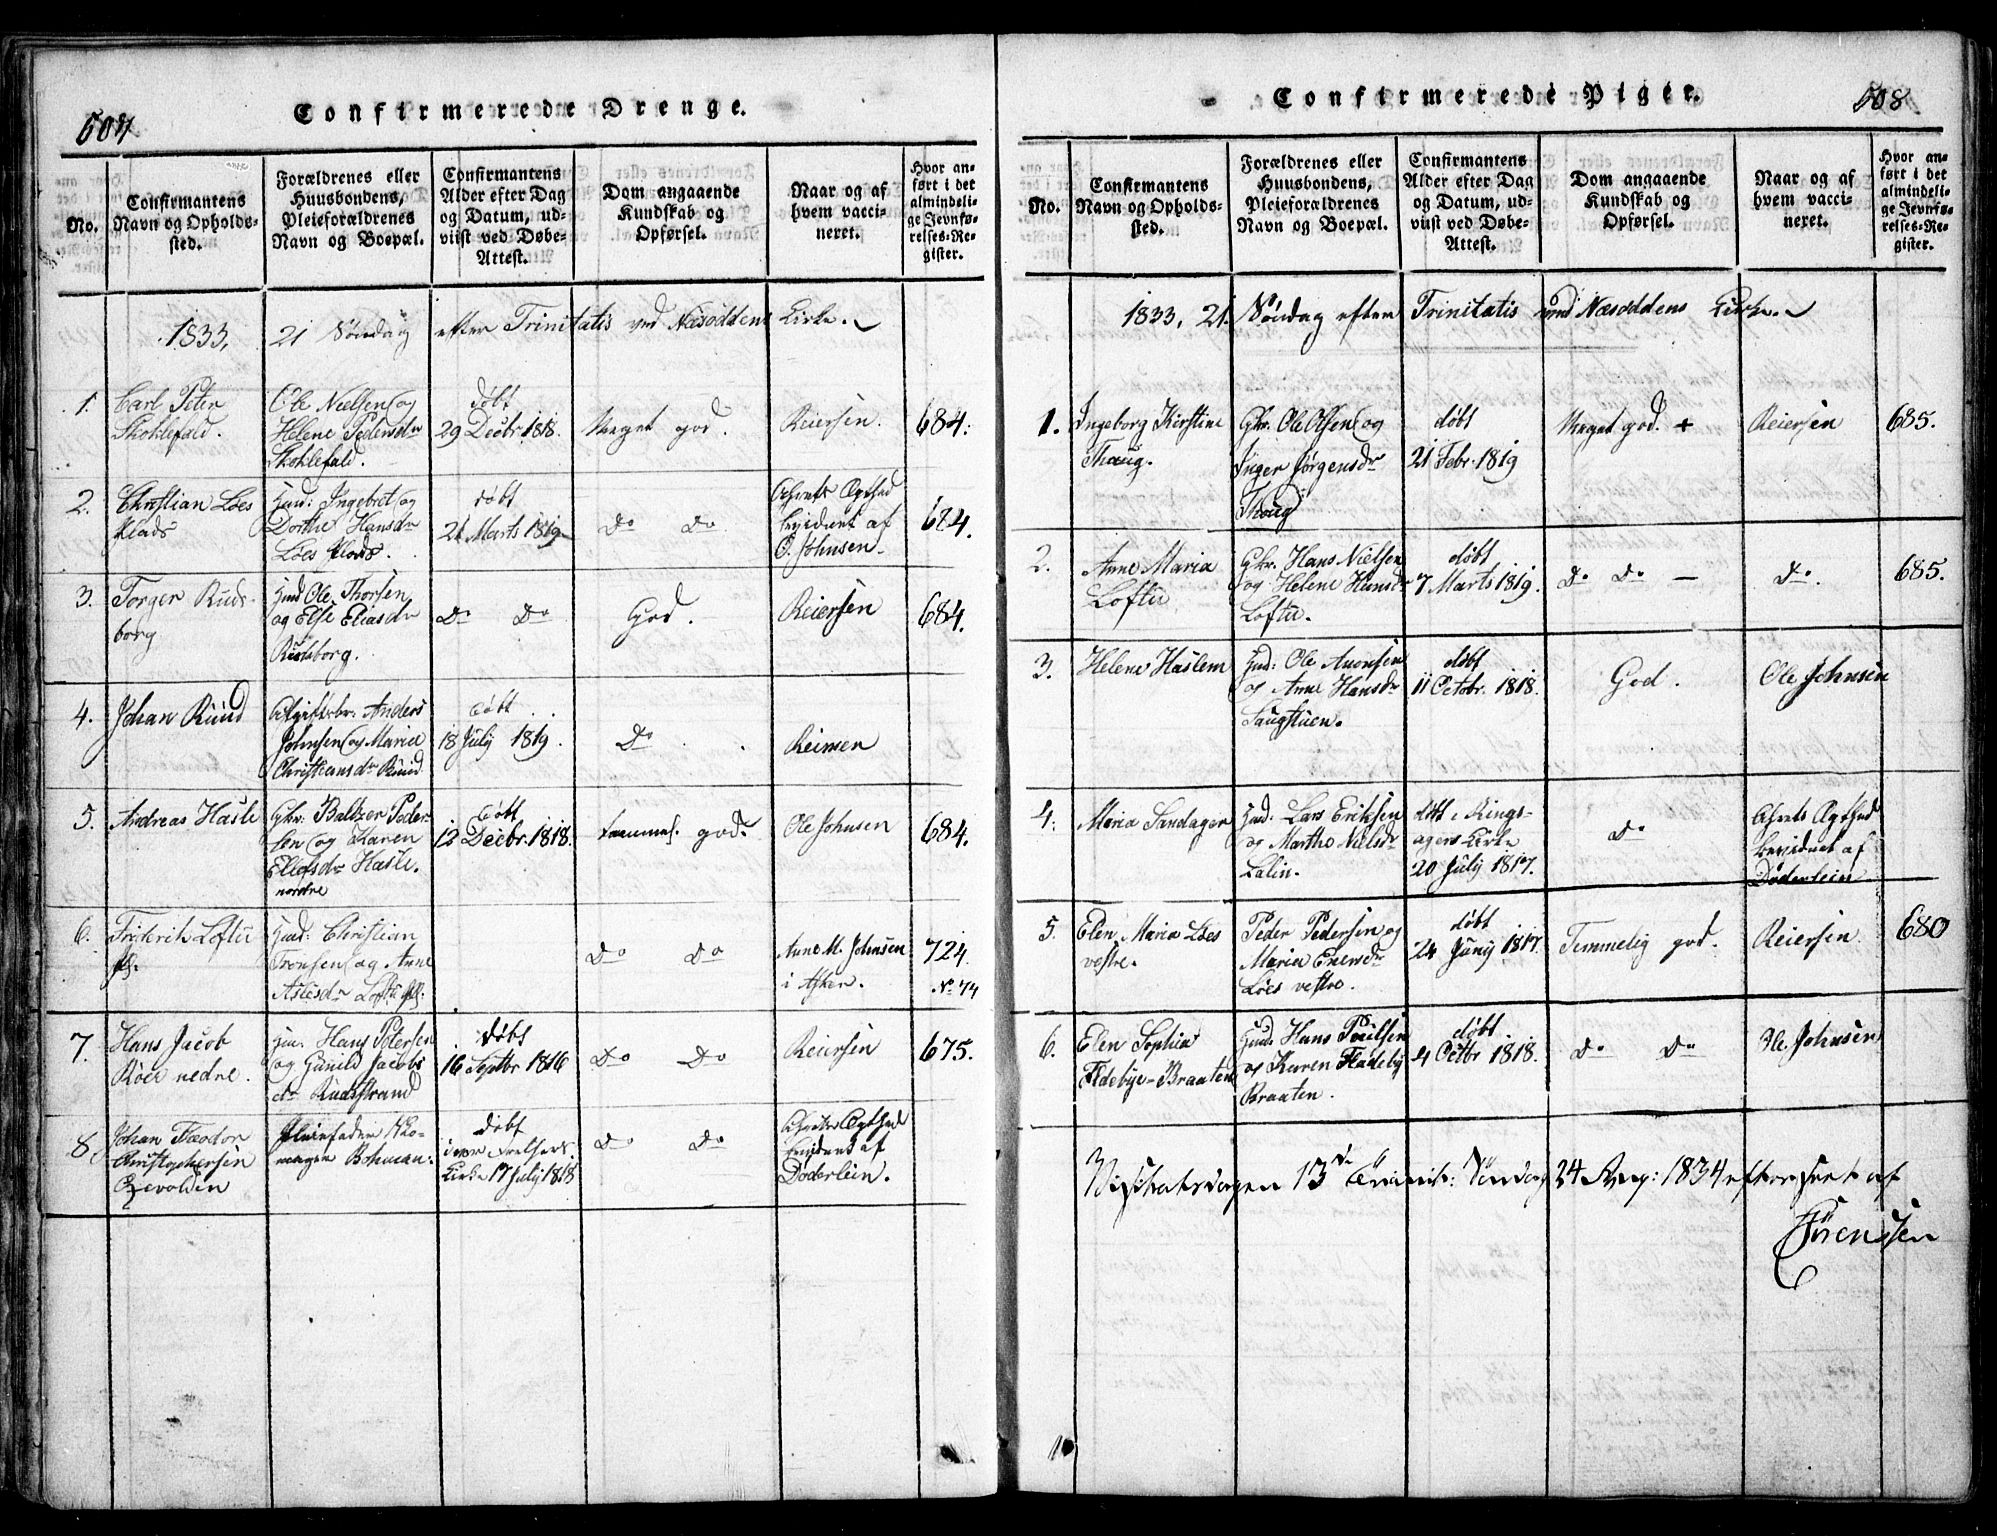 504
Confirmerede Drenge.
No.
Confirmantens
Navn og Opholds-
sted.
Forældrenes eller
Huusbondens,
Pleieforældrenes
Navn og Boepæl.
Confirmantens
Alder efter Dag
og Datum, ud-
viist ved Døbe-
Attest.
Dom angaaende
Kundskab og
Opførsel.
Naar og af
hvem vacci-
neret.
Hvor an-
ført i det
almindeli-
ge Jevnfø-
relses-Re-
gister.
1833, 21 Søndag efter Trinitatis ved Næsoddens Kirke.
1.
Carl Peter
Skoklefald.
Ole Nielsen og
Helene Pedersdr
Skoklefald.
døbt
29 Decbr. 1818.
Meget god.
Reiersen.
684.
2.
Christian Løes
Plads
Huusd: Ingebret og
Dorthe Hansdr
Løes Plads.
døbt
21 Marts 1819
Do Do
Ahrets Ogthed
bevidnet af
O. Johnsen.
684.
3.
Torger Ruds-
borg
Huusd Ole Thorsen
og Else Eliasdr
Rudsborg.
Do Do
God.
Reiersen
684.
4.
Johan Ruud
Afgiftsbr. Anders
Johnsen og Maria
Christiansdr Ruud
døbt
18 July 1819.
Do
Reiersen
5.
Andreas Hasle
Gbr. Baltzer Peder-
sen og Karen
Elefsdr Hasle.
nordre
døbt
12 Decbr. 1818.
temmel. god.
Ole Johnsen
684.
6.
Friderik Loftu
Huusd: Christian
Tronsen og Anne
Aslesdr Loftu
Do Do
Anne M. Johnsen
i Asker.
724.
No 44
7.
Hans Jacob
Roer nedre.
Hans Petersen
og Gunild Jacobs
dr Rudstrand
døbt
16 Septbr 1816
Do Do
Reiersen
675.
8.
Johan Fæodor
Christophersen
Pleiefader
Bohman.
døbt
i vor Frelsers
Kirke 17 July 1818
Do Do
bevidnet af
Døderlein.
508
Confirmerede Piger.
No.
Confirmantens
Navn og Opholds-
sted.
Forældrenes eller
Huusbondens,
Pleieforældrenes
Navn og Boepæl.
Confirmantens
Alder efter Dag
og Datum, ud-
viist ved Døbe-
Attest.
Dom angaaende
Kundskab og
Opførsel.
Naar og af
hvem vacci-
neret.
Hvor an-
ført i det
almindeli-
ge Jevnfø-
relses-Re-
gister.
1833, 21. Søndag efter Trinitatis ved Næsoddens Kirke.
1.
Ingeborg Kirstine
Thoug.
Gbr. Ole Olsen og
Inger Jørgensdr
Thoug
døbt
21 Febr. 1819
Meget god. +
Reiersen
685.
2.
Anne Maria
Loftu
Gbr. Hans Nielsen
og Helene Hansdr
Loftu.
døbt
7 Marts 1819.
Do Do —
Do.
685.
3.
Helene Haslem
Huusd: Ole Aronsen
og Anne Hansdr
Saugstuen.
døbt
11 Octobr. 1818.
God.
Ole Johnsen
4.
Maria Sandager
Huusd: Lars Eriksen
og Marthe Nielsdr
Lalin.
døbt i Rings-
agers Kirke
20 July 1817.
Do
Ahrets Ogthed
bevidnet af
Døderlein
5.
Elen Maria Løes
vestre.
Peder Pedersen og
Maria Enersdr
Løes vestre.
døbt
24 Juny 1817.
Temmelig god.
Reiersen.
680
6.
Elen Sophia
Fladebye-Braaten
Huusd: Hans Poulsen
og Karen Fladeby
Braaten.
døbt
4 Octbr 1818.
Do Do
Ole Johnsen
Visitatsdagen 13de Trinit: Søndag 24 Aug: 1834 efterseet af
Sørenssen